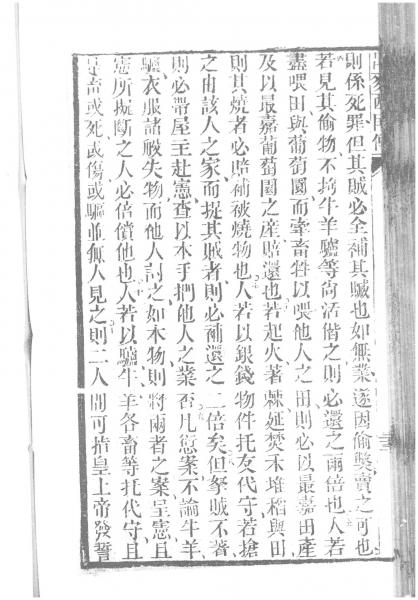 則係死罪但其賊必全補其贓也如無業遂因偷獘賣之可也
若見其偷物不拘牛羊驢等尚活偕之則必還之兩倍也人若
盡喂田與葡萄園而牽畜牲以喂他人之田則必以最嘉田產
及以最嘉葡萄園之產賠還也若起火著棘延焚禾堆稻與田
則其燒者必賠補被燒物也人若以銀錢物件托友代守若搶
之由該人之家而捉其賊者則必補還之二倍矣但拏賊不著
則必帶屋主赴憲查以本手捫他人之業否凡愆案不論牛羊
驢衣服諸般失物而他人討之如本物則將兩者之案呈憲且
憲所擬斷之人必倍償他也人若以驢牛羊各畜等托代守且
畜或死或傷或驅並無人見之則二人間可指皇上帝發誓